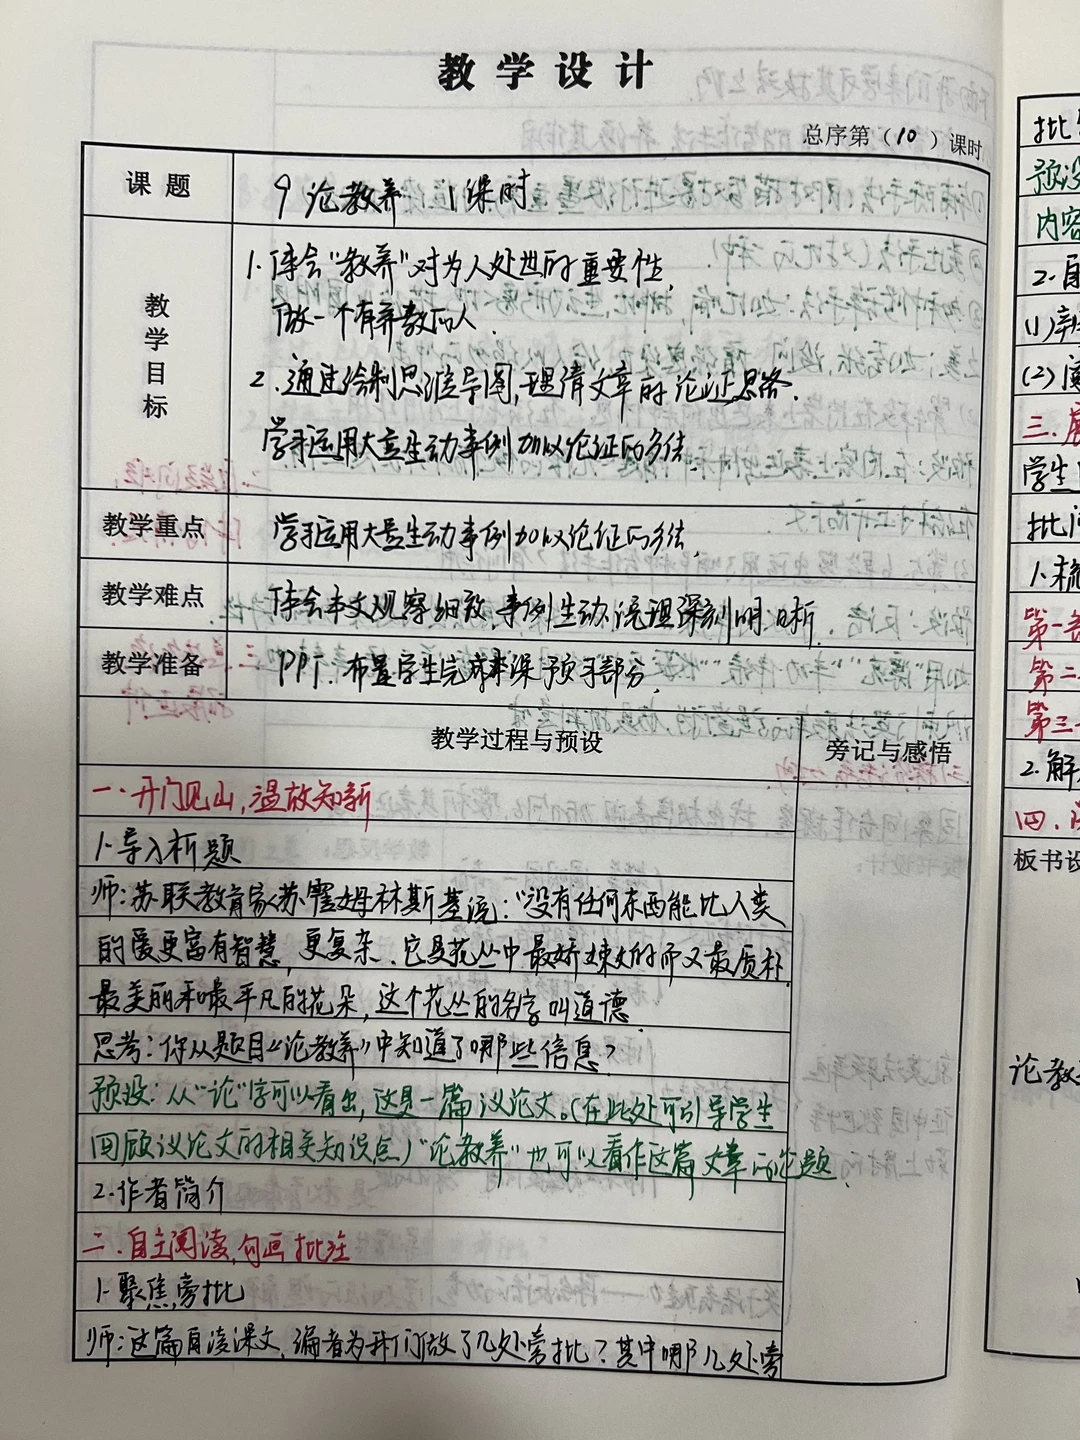 教学设计
总序第（10）课时
课题
9 论教养 1课时
教学目标
1.体会“教养”对为人处世的重要性,
做一个有养教的人.
2.通过绘制思维导图,理清文章的论证思路.
学习运用大量生动事例加以论证的方法.
教学重点
学习运用大量生动事例加以论证的方法.
教学难点
体会本文观察细致,事例生动,说理深刻明晰.
教学准备
PPT.布置学生完成本课预习部分.
教学过程与预设
旁记与感悟
一.开门见山,温故知新
1.导入析题
师:苏联教育家苏霍姆林斯基说:“没有任何东西能比人类
的爱更富有智慧,更复杂.它是花丛中最娇嫩的而又最质朴
最美丽和最平凡的花朵,这个花丛的名字叫道德.
思考:你从题目《论教养》中知道了哪些信息?
预设:从“论”字可以看出,这是一篇议论文。(在此处可引导学生
回顾议论文的相关知识点)“论教养”也可以看作这篇文章的论题.
2.作者简介
二.自主阅读,勾画批注
1.聚焦旁批
师:这篇自读课文,编者为我们做了几处旁批?其中哪几处旁
批
预设
内容
2.自
(1)辨
(2)
三.展
学生
批
1.梳
第一
第二
第三
2.解
四.
板书设
论教